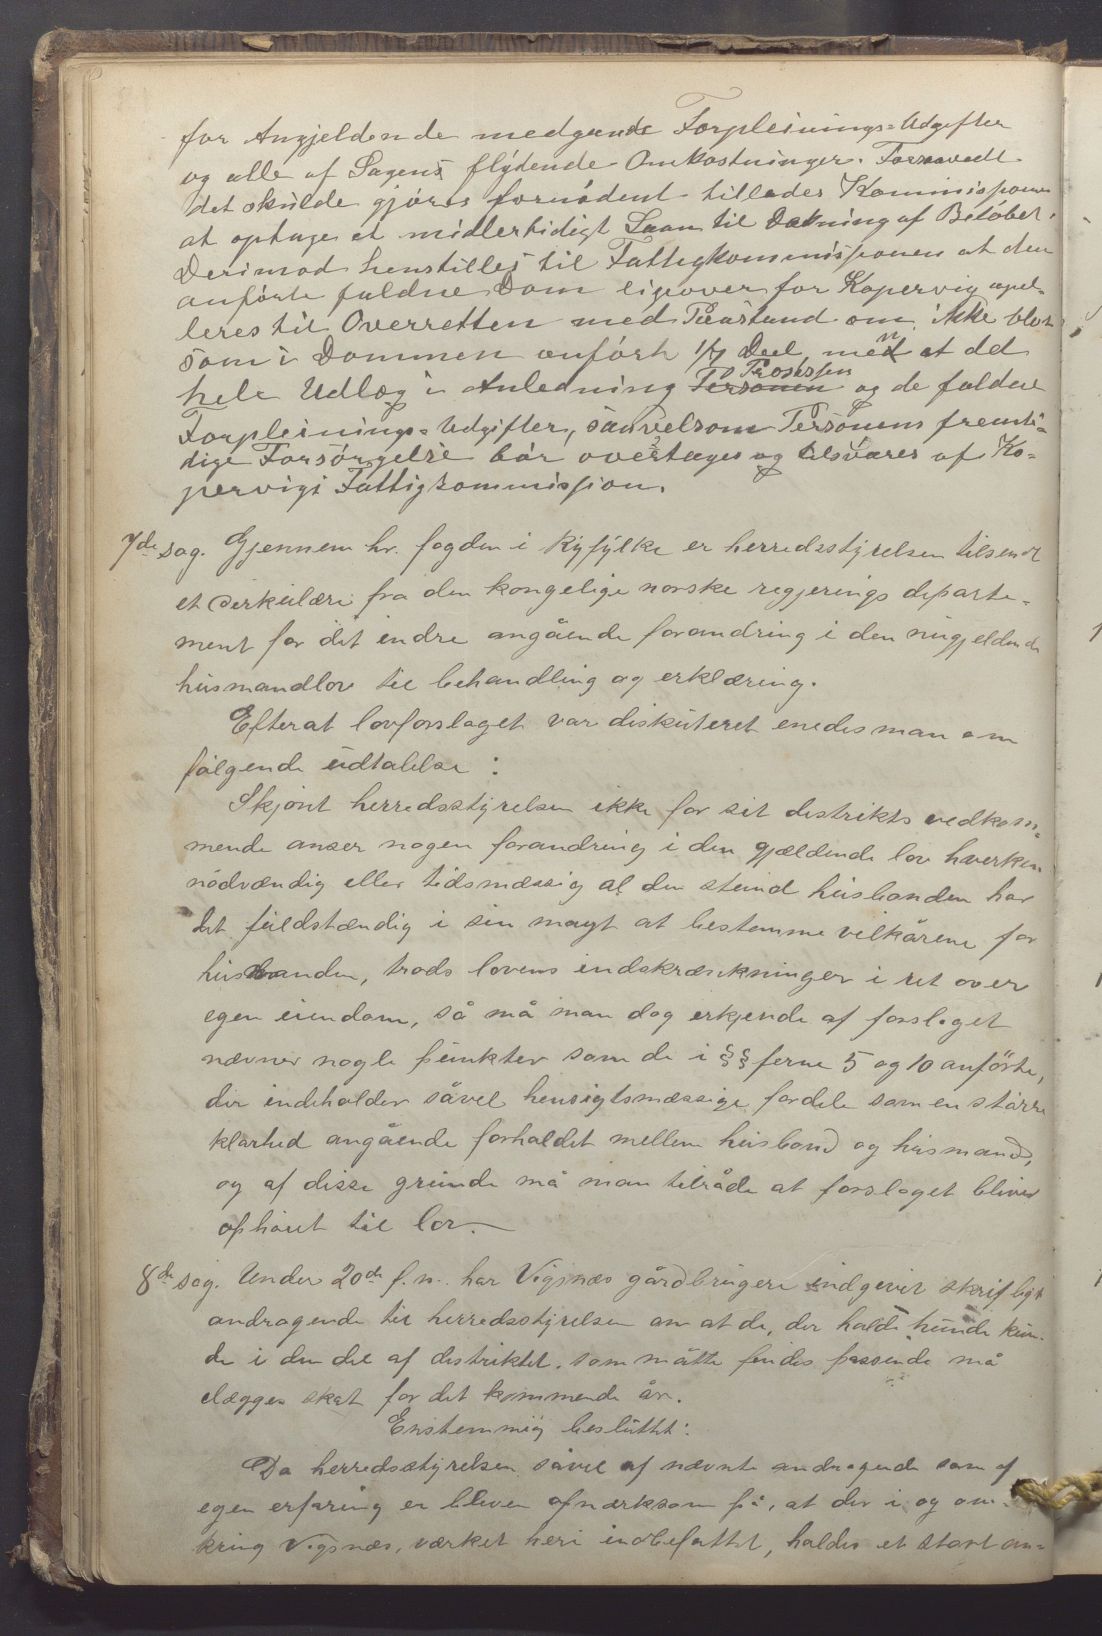 for Angjeldende medgaaede Forpleinings-Udgifter
og alle af Sagens flydende Omkostninger. Forsaavidt
det skulde gjöres fornödent tillades Kommissionen
at optage et midlertidigt Laan til Dækning af Belöbet.
Derimod henstilles til Fattigkommissionen at den
anförte faldne Dom ligeover for Kopervig apel-
leres til Overretten med Paastand om ikke blot
som i Dommen anfört 1/7 Deel, men at det
hele Udlæg i Anledning Personen Prosessen og de faldne
Forpleinings-Udgifter, saavelsom Personens fremti-
dige Forsörgelse bör overtages og tilsvares af Ko-
pervigs Fattigkommission.
7de sag. Gjennem hr. fogden i Ryfylke er herredsstyrelsen tilsendt
et cirkulære fra den kongelige norske regjerings departe-
ment for det indre angående forandring i den nugjeldende
husmandlov til behandling og erklæring.
Efterat lovforslaget var diskuteret enedes man om
følgende udtalelse:
Skjönt herredsstyrelsen ikke for sit distrikts vedkom-
mende anser nogen forandring i den gjældende lov hverken
nödvændig eller tidsmæssig al den stund husbonden har
det fuldstændig i sin magt at bestemme vilkårene for
husmanden, trods lovens indskrænkninger i ret over
egen eiendom, så må man dog erkjende af forslaget
nævner nogle punkter som de i §§ ferne 5 og 10 anförte,
der indeholder såvel hensigtsmæssige fordele som en större
klarhed angående forholdet mellem husbond og husmand,
og af disse grunde må man tilråde at forslaget bliver
ophöiet til lov.
8de sag. Under 20de f. m. har Vigsnæs gårdbrugere indgivit skriftligt
andragende til herredsstyrelsen om at de, der holdt hunde kun-
de i den del af distriktet, som måtte findes passende må
ilægges skat for det kommende år.
Enstemmig besluttet:
Da herredsstyrelsen såvel af nævnte andragende som af
egen erfaring er bleven opmærksom på, at der i og om-
kring Vigsnæs, værket heri indbefattet, holdes et stort an-